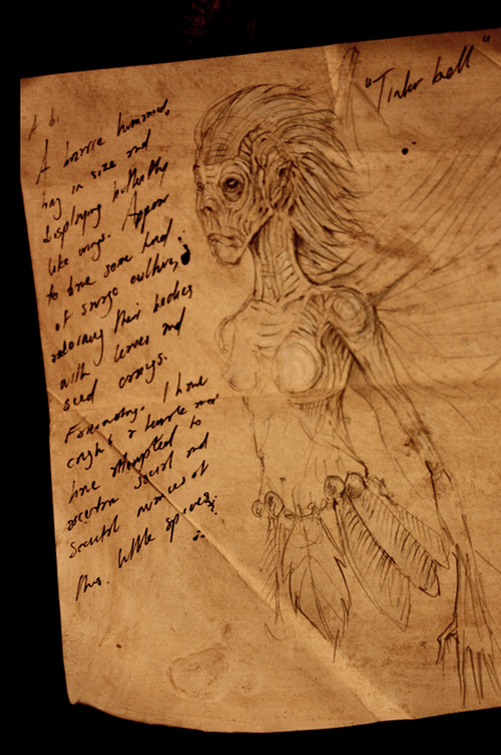 "Tinkr bell"
A bizarre humanoid,
tiny in size and
displaying butterfly
like wings. Appear
to have some kind
of savage culture,
adorning their bodies
with leaves and
seed casings.
Fascinating. I have
caught a female and
have attempted to
ascertain social and
societal nuances of
this little species.